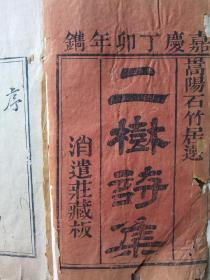 嘉慶丁卯年鐫
嵩陽石竹居選
二樹詩集
消遣莊藏板
序